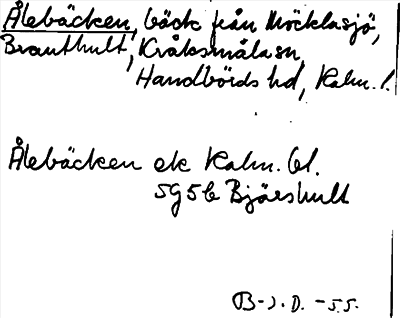 Ålebäcken, bäck från Möcklasjö,
Branthult, Kråksmåla sn,
Handbörds hd, Kalm. l.
Ålebäcken ek Kalm. bl.
5G5b Bjärshult
B-J.D. -55.